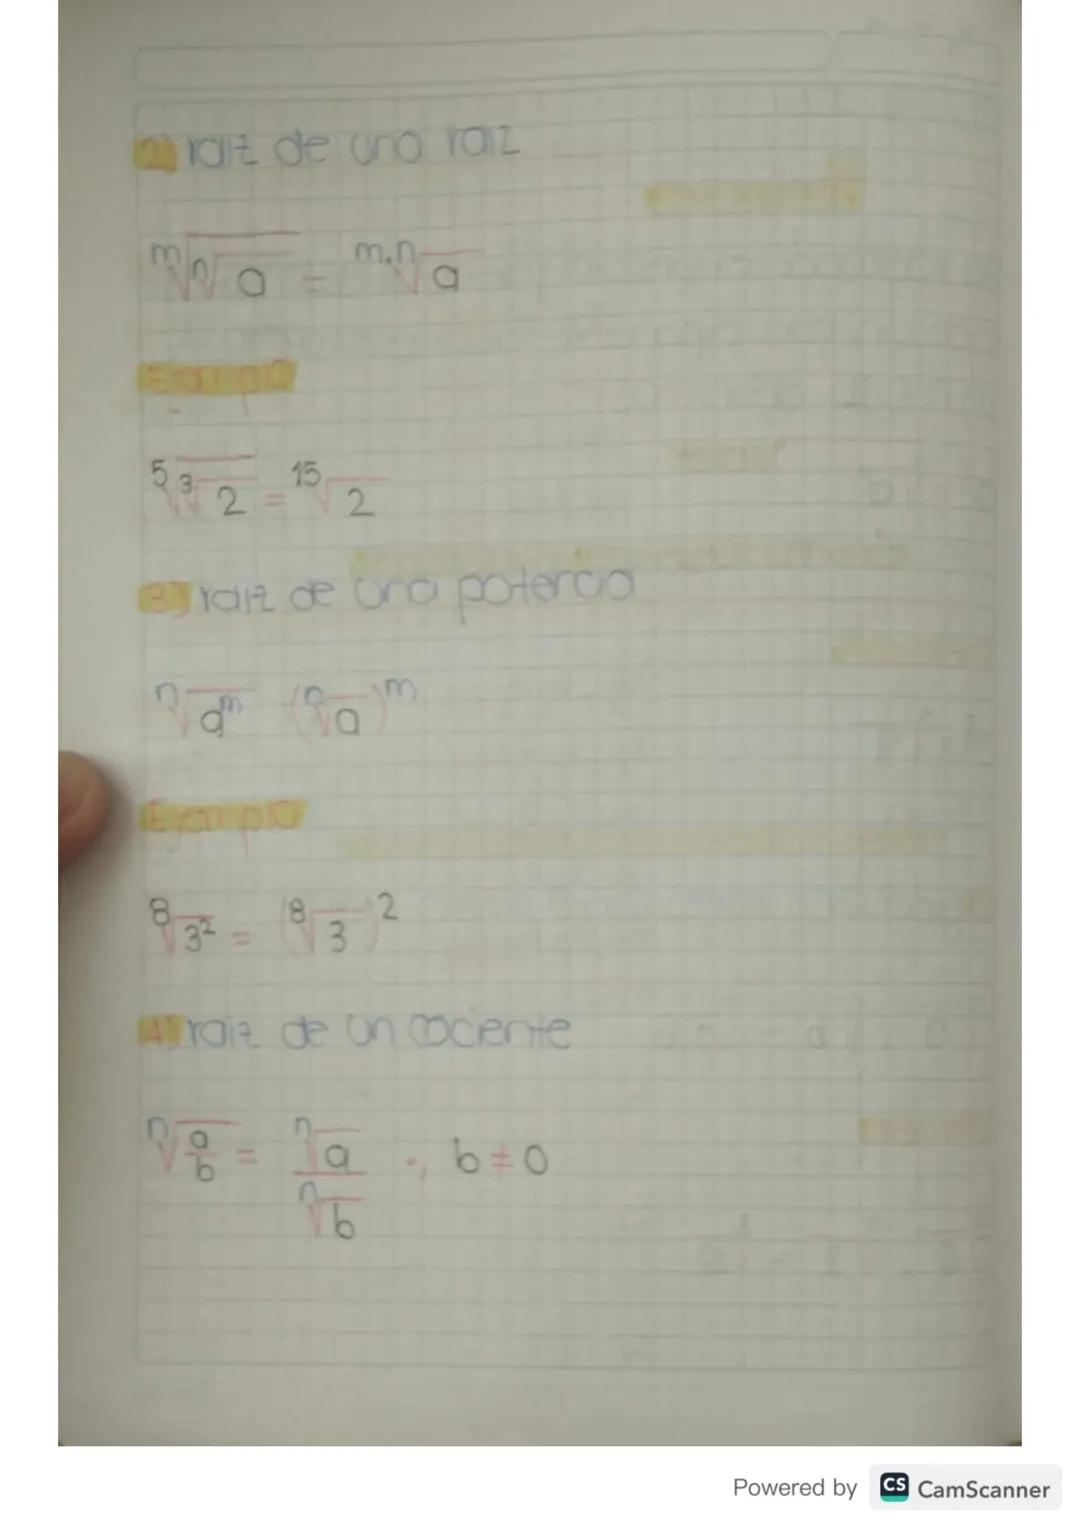 2) raiz de una raiz
ᵐ√ⁿ√a = ᵐ·ⁿ√a
Ejemplo
⁵√³√2 = ¹⁵√2
3) raiz de una potencia
ⁿ√aᵐ (ⁿ√a)ᵐ
Ejemplo
⁸√3² = (⁸√3)²
4) raiz de un cociente
ⁿ√a/b = ⁿ√a/ⁿ√b ., b≠0
Powered by CS CamScanner